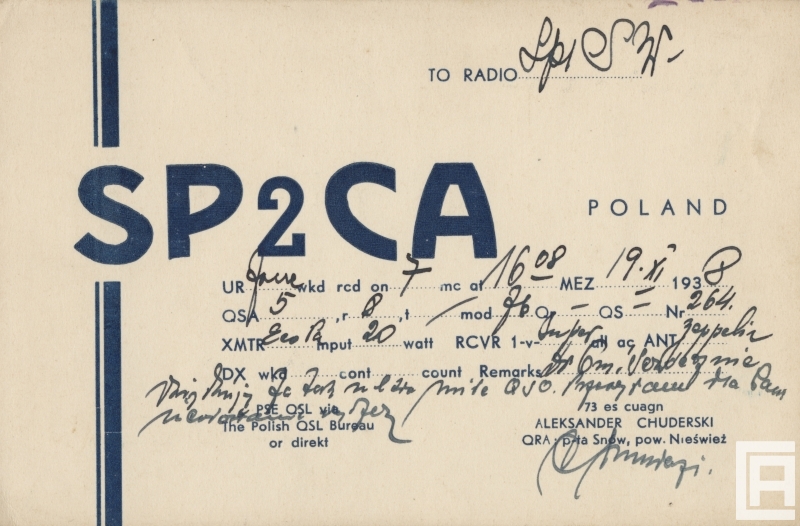 TO RADIO Sp1
SP2CA
POLAND
UR fone wkd rcd on 7 mc at 16 08 MEZ 19.XI 1938
QSA 5, r 8, t / mod Q - QS = Nr 264.
XMTR Eco Pa input 20 watt RCVR 1-v- Super all ac ANT Zeppelin
DX wkd cont count Remarks Dr Om. Serdecznie
Dziękuję za tak miłe QSO.
PSE QSL via
The Polish QSL Bureau
or direkt
73 es cuagn
ALEKSANDER CHUDERSKI
QRA: p-ta Snów, pow. Nieśwież